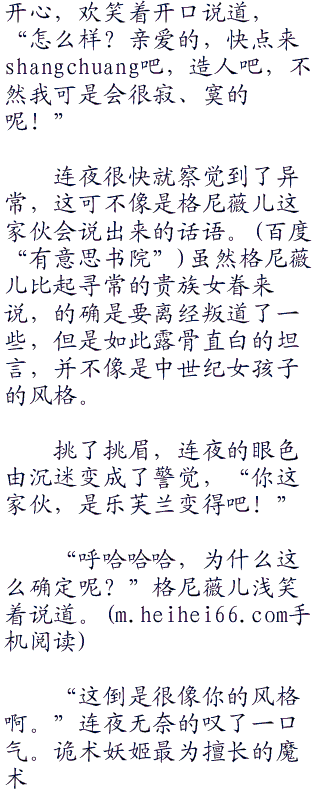 开心，欢笑着开口说道，
“怎么样？亲爱的，快点来
shangchuang吧，造人吧，不
然我可是会很寂、寞的
呢！”
连夜很快就察觉到了异
常，这可不像是格尼薇儿这
家伙会说出来的话语。(百度
“有意思书院”)虽然格尼薇
儿比起寻常的贵族女眷来
说，的确是要离经叛道了一
些，但是如此露骨直白的坦
言，并不像是中世纪女孩子
的风格。
挑了挑眉，连夜的眼色
由沉迷变成了警觉，“你这
家伙，是乐芙兰变得吧！”
“呼哈哈哈，为什么这
么确定呢？”格尼薇儿浅笑
着说道。(m.heihei66.com手
机阅读)
“这倒是很像你的风格
啊。”连夜无奈的叹了一口
气。诡术妖姬最为擅长的魔
术